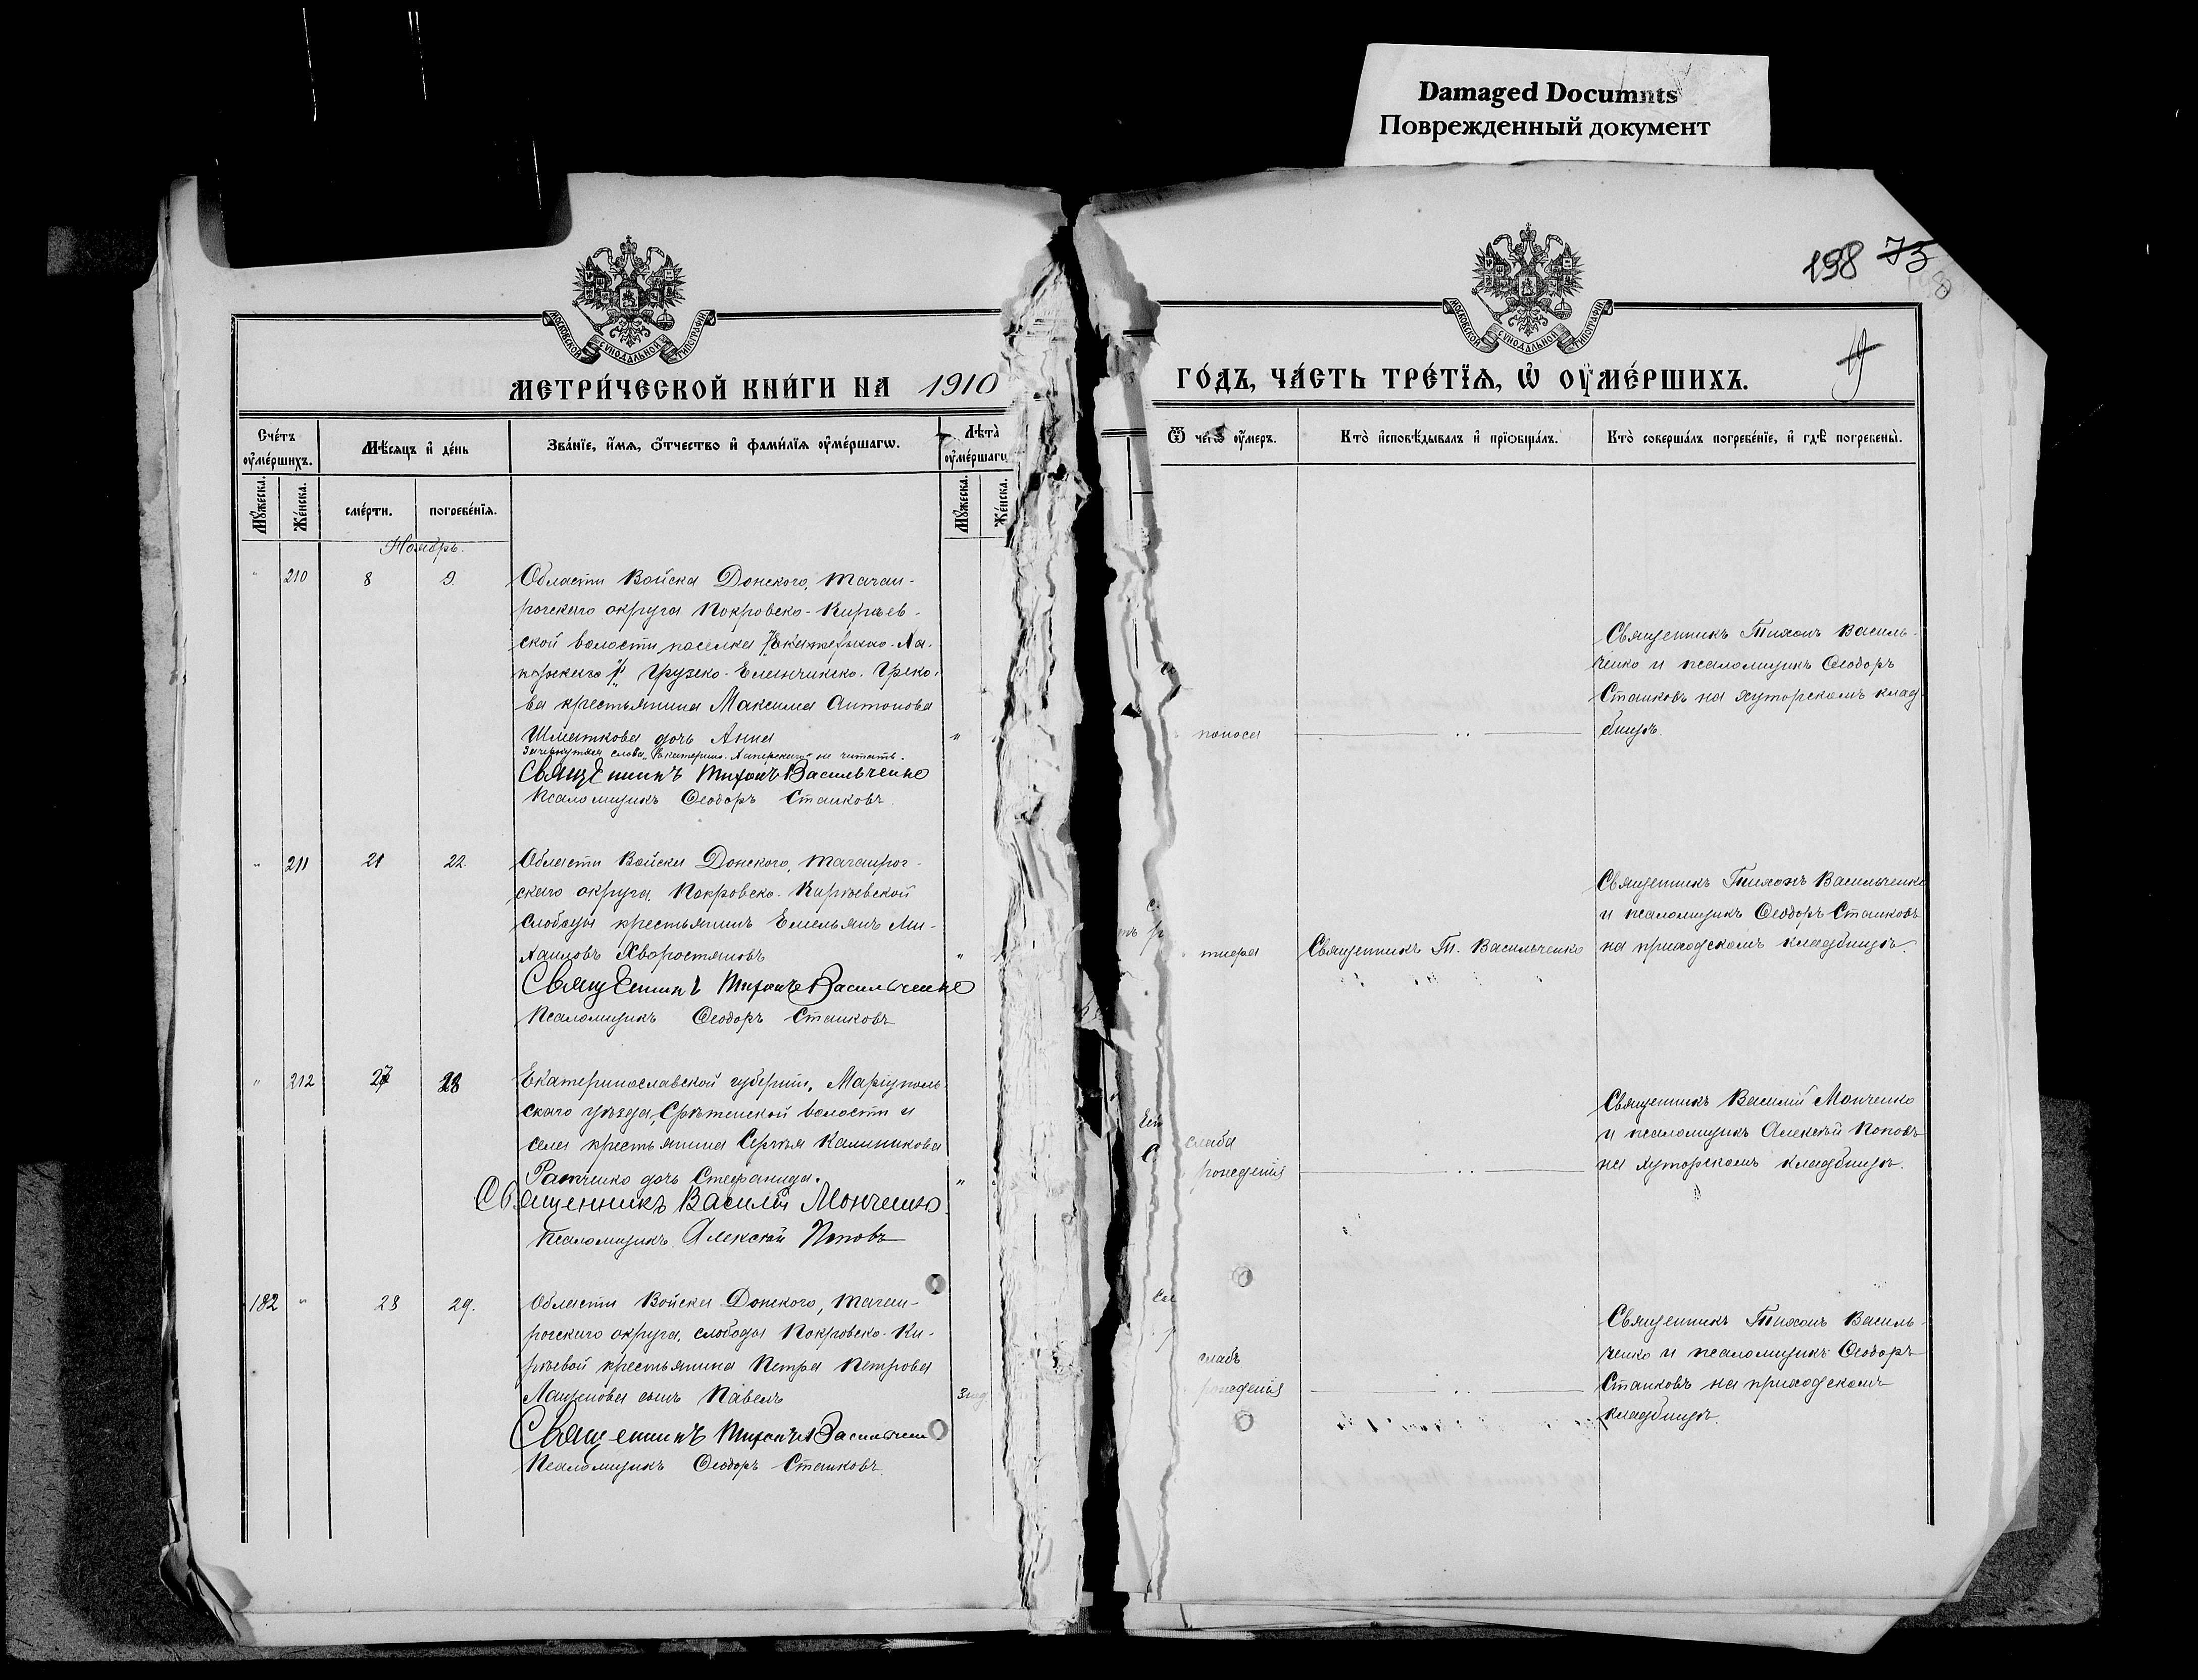 Damaged Documnts
Поврежденный документ
198 73
МОСКОВСКОЙ СѴНОДАЛЬНОЙ ТИПОГРАФІИ
МОСКОВСКОЙ СѴНОДАЛЬНОЙ ТИПОГРАФІИ
МЕТРИ́ЧЕСКОЙ КНИ́ГИ НА 1910
ГО́ДЪ, ЧА́СТЬ ТРЕ́ТІѦ, Ѡ҆ ОУ҆МЕ́РШИХЪ.
Сче́тъ оу҆ме́ршихъ.
Мѣ́сѧцъ и҆ де́нь
Зва́нїе, и҆́мѧ, ѻ҆́тчество и҆ фами́лїѧ оу҆ме́ршагѡ.
Лѣ́та оу҆ме́ршагѡ
Ѿ чегѡ̀ оу҆́меръ.
Кто̀ и҆сповѣ́дывалъ и҆ прїѡбща́лъ.
Кто̀ соверша́лъ погребе́нїе, и҆ гдѣ̀ погребены̀.
Мꙋ́жеска.
Же́нска.
сме́рти.
погребе́нїѧ.
Мꙋ́жеска.
Же́нска.
Ноябрь.
" 210 8 9.
Области Войска Донского, Таган-
рогскаго округа Покровско-Киръев-
ской волости поселка Екатерино-Ха-
пэрскаго Грузско-Еланчикско-Греко-
ва крестьянина Максима Антонова
Шматкова дочь Анна
Зачеркнутыя слова „Екатерино-Хапэрскаго" не читать.
Священникъ Тихонъ Васильченко
Псаломщикъ Ѳеодоръ Станковъ.
поноса
Священникъ Тихонъ Василь-
ченко и псаломщикъ Ѳеодоръ
Станковъ на хуторскомъ клад-
бищѣ.
" 211 21 22.
Области Войска Донского, Таганрог-
скаго округа, Покровско-Киръевской
слободы крестьянинъ Емельянъ Ми-
хаиловъ Хворостяновъ
Священникъ Тихонъ Васильченко
Псаломщикъ Ѳеодоръ Станковъ
тифа
Священникъ Т. Васильченко
Священникъ Тихонъ Васильченко
и псаломщикъ Ѳеодоръ Станковъ
на приходскомъ кладбищѣ.
" 212 27 28
Екатеринославской губерніи, Маріуполь-
скаго уѣзда, Срѣтенской волости и
села крестьянина Сергѣя Калиникова
Ратченко дочь Стефанида.
Священникъ Василій Монченко
Псаломщикъ Алексѣй Поповъ
слаба
рожденія
Священникъ Василій Монченко
и псаломщикъ Алексѣй Поповъ
на хуторскомъ кладбищѣ.
182 " 28 29.
Области Войска Донского, Таган-
рогскаго округа, слободы Покровско-Ки-
ръевой крестьянина Петра Петрова
Лащенова сынъ Павелъ
Священникъ Тихонъ Васильчен
Псаломщикъ Ѳеодоръ Станковъ.
слабъ
рожденія
Священникъ Тихонъ Василь-
ченко и псаломщикъ Ѳеодоръ
Станковъ на приходскомъ
кладбищѣ.